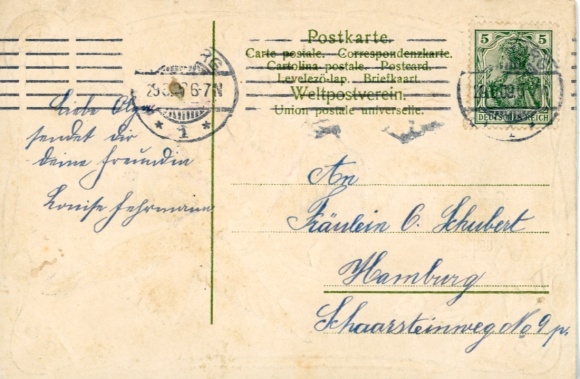 Postkarte.
Carte postale. Correspondenzkarte.
Cartolina postale. Postcard.
Levelező-lap. Briefkaart.
Weltpostverein.
Union postale universelle.
5 5
DEUTSCHES REICH
6-7N
* 1 *
Liebe Olga
sendet dir
deine Freundin
Louise Fehrmann
An
Fräulein O. Schubert
Hamburg
Schaarsteinweg No 9 p.